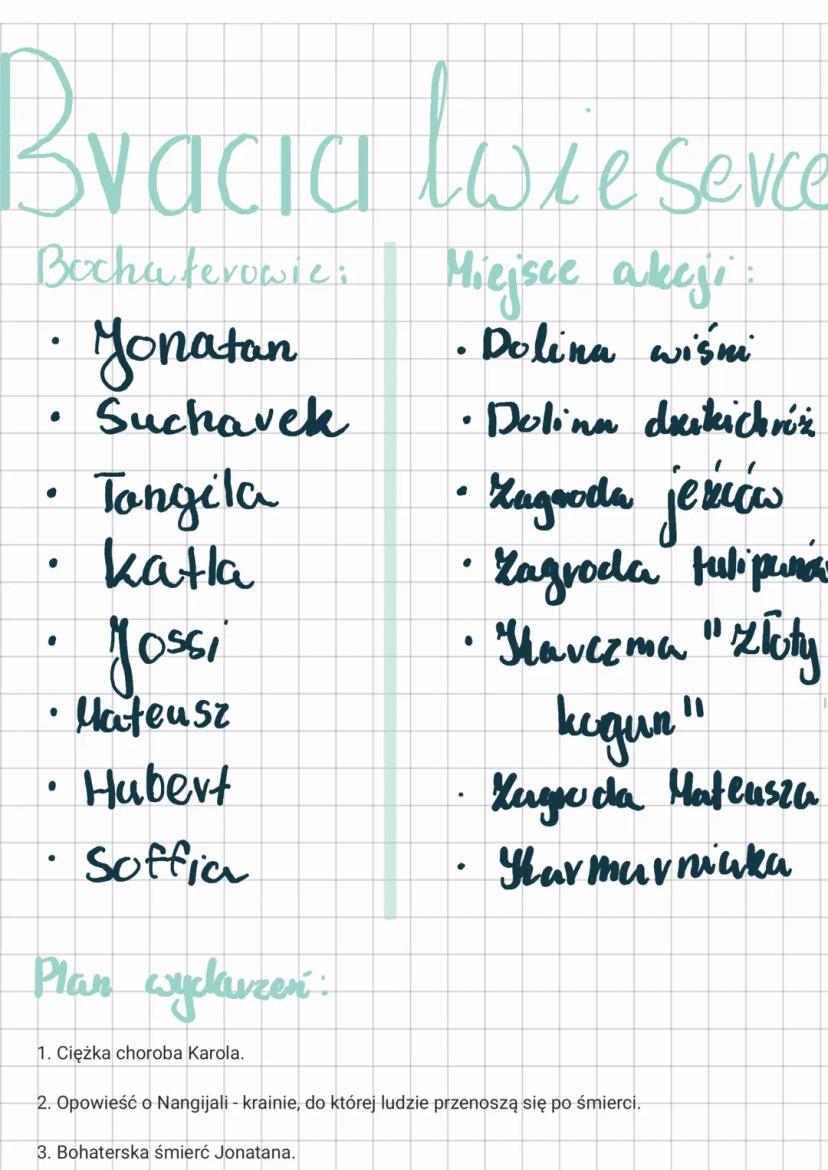 Bracia lwie serce
Bochaterowie:
• Jonatan
• Sucharek
• Tangila
• Katla
• Jossi
• Mateusz
• Hubert
• Soffia
Miejsce akcji:
• Dolina wiśni
• Dolina dzikich róż
• Zagroda jeźców
• Zagroda tulipanów
• Karczma "Złoty
kogun"
• Zagroda Mateusza
• Karmarniaka
Plan wydarzeń:
1. Ciężka choroba Karola.
2. Opowieść o Nangijali - krainie, do której ludzie przenoszą się po śmierci.
3. Bohaterska śmierć Jonatana.